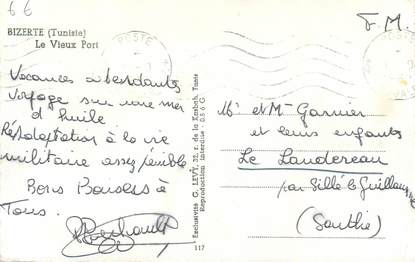 66
F.M.
BIZERTE (Tunisie)
Le Vieux Port
POSTE
Vacances
voyage sur une mer
d'huile
Réadaptation à la vie
militaire assez pénible.
Bons Baisers à
Tous.
Exclusivité G. LÉVY, 20, r. de la Kasbah, Tunis
Reproduction interdite
117
Mr et Me Garnier
et leurs enfants
Le Laudereau
par Sillé le Guillaume
(Sarthe)